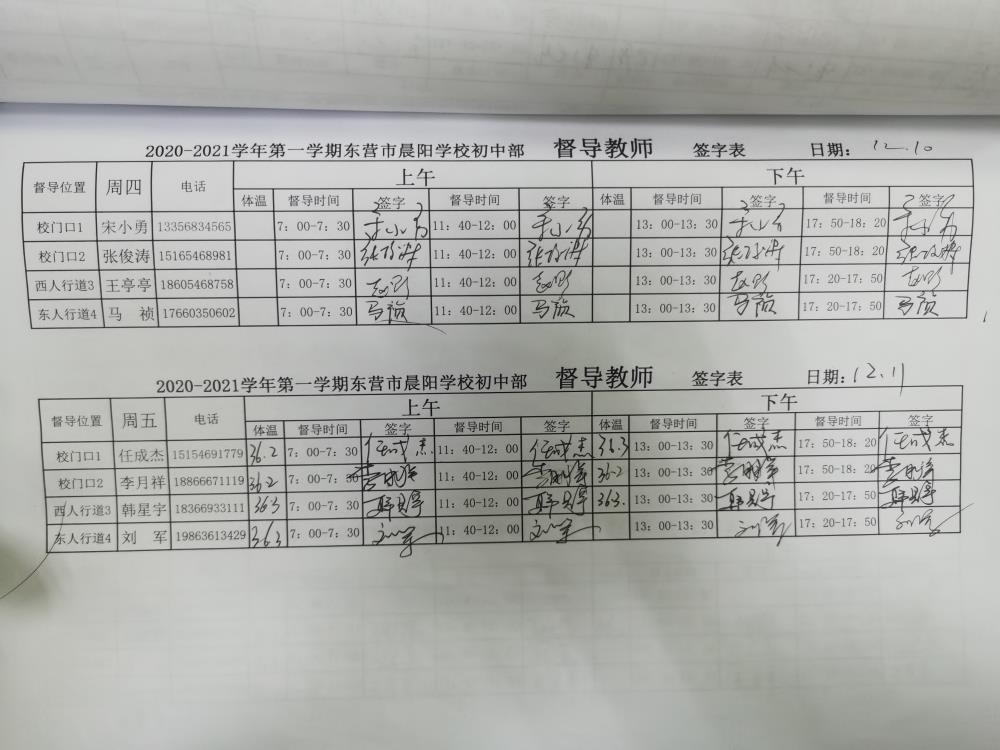 2020-2021学年第一学期东营市晨阳学校初中部 督导教师 签字表 日期: 12.10
督导位置 周四 电话 上午 下午
体温 督导时间 签字 督导时间 签字 体温 督导时间 签字 督导时间 签字
校门口1 宋小勇 13356834565 7: 00-7: 30 宋小勇 11: 40-12: 00 宋小勇 13: 00-13: 30 宋小勇 17: 50-18: 20 宋小勇
校门口2 张俊涛 15165468981 7: 00-7: 30 张俊涛 11: 40-12: 00 张俊涛 13: 00-13: 30 张俊涛 17: 50-18: 20 张俊涛
西人行道3 王亭亭 18605468758 7: 00-7: 30 11: 40-12: 00 13: 00-13: 30 17: 20-17: 50
东人行道4 马 祯 17660350602 7: 00-7: 30 马祯 11: 40-12: 00 马祯 13: 00-13: 30 马祯 17: 20-17: 50 马祯
2020-2021学年第一学期东营市晨阳学校初中部 督导教师 签字表 日期: 12.11
督导位置 周五 电话 上午 下午
体温 督导时间 签字 督导时间 签字 体温 督导时间 签字 督导时间 签字
校门口1 任成杰 15154691779 36.2 7: 00-7: 30 任成杰 11: 40-12: 00 任成杰 36.3 13: 00-13: 30 任成杰 17: 50-18: 20 任成杰
校门口2 李月祥 18866671119 36.2 7: 00-7: 30 李月祥 11: 40-12: 00 李月祥 36.2 13: 00-13: 30 李月祥 17: 50-18: 20 李月祥
西人行道3 韩星宇 18366933111 36.3 7: 00-7: 30 韩星宇 11: 40-12: 00 韩星宇 36.3. 13: 00-13: 30 韩星宇 17: 20-17: 50 韩星宇
东人行道4 刘 军 19863613429 36.3 7: 00-7: 30 刘军 11: 40-12: 00 刘军 13: 00-13: 30 刘军 17: 20-17: 50 刘军